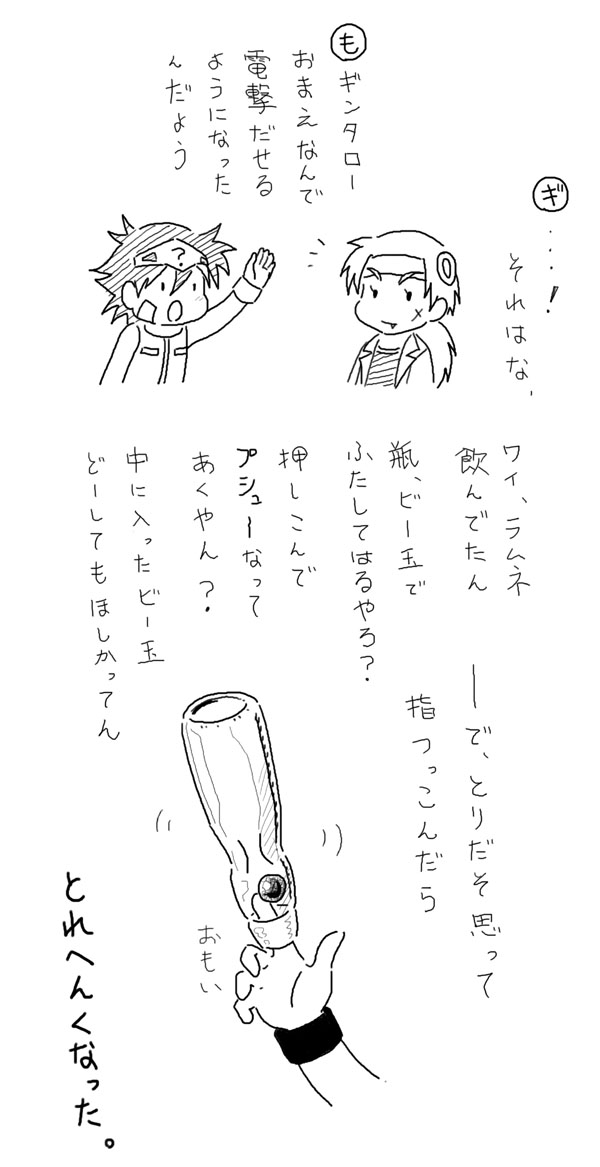 も
ギンタロー
おまえなんで
電撃だせる
ようになった
んだよう
ギ
・・・・!
それはな、
ワイ、ラムネ
飲んでたん
瓶、ビー玉で
ふたしてはるやろ?
押しこんで
プシューなって
あくやん?
中に入ったビー玉
どーしてもほしかってん
―で、とりだそ思って
指つっこんだら
おもい
とれへんくなった。
?